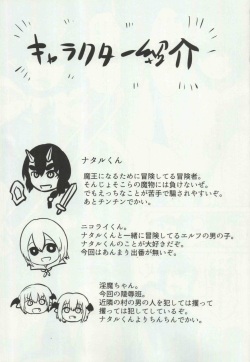 キャラクター紹介
ナタルくん
魔王になるために冒険してる冒険者。
そんじょそこらの魔物には負けないぞ。
でもえっちなことが苦手で騙されやすいぞ。
あとチンチンでかい。
ニコライくん。
ナタルくんと一緒に冒険してるエルフの男の子。
ナタルくんのことが大好きだぞ。
今回はあんまり出番が無いぞ。
淫魔ちゃん。
今回の陵辱班。
近隣の村の男の人を犯しては攫って
攫っては犯してしているぞ。
ナタルくんよりちんちんでかい。